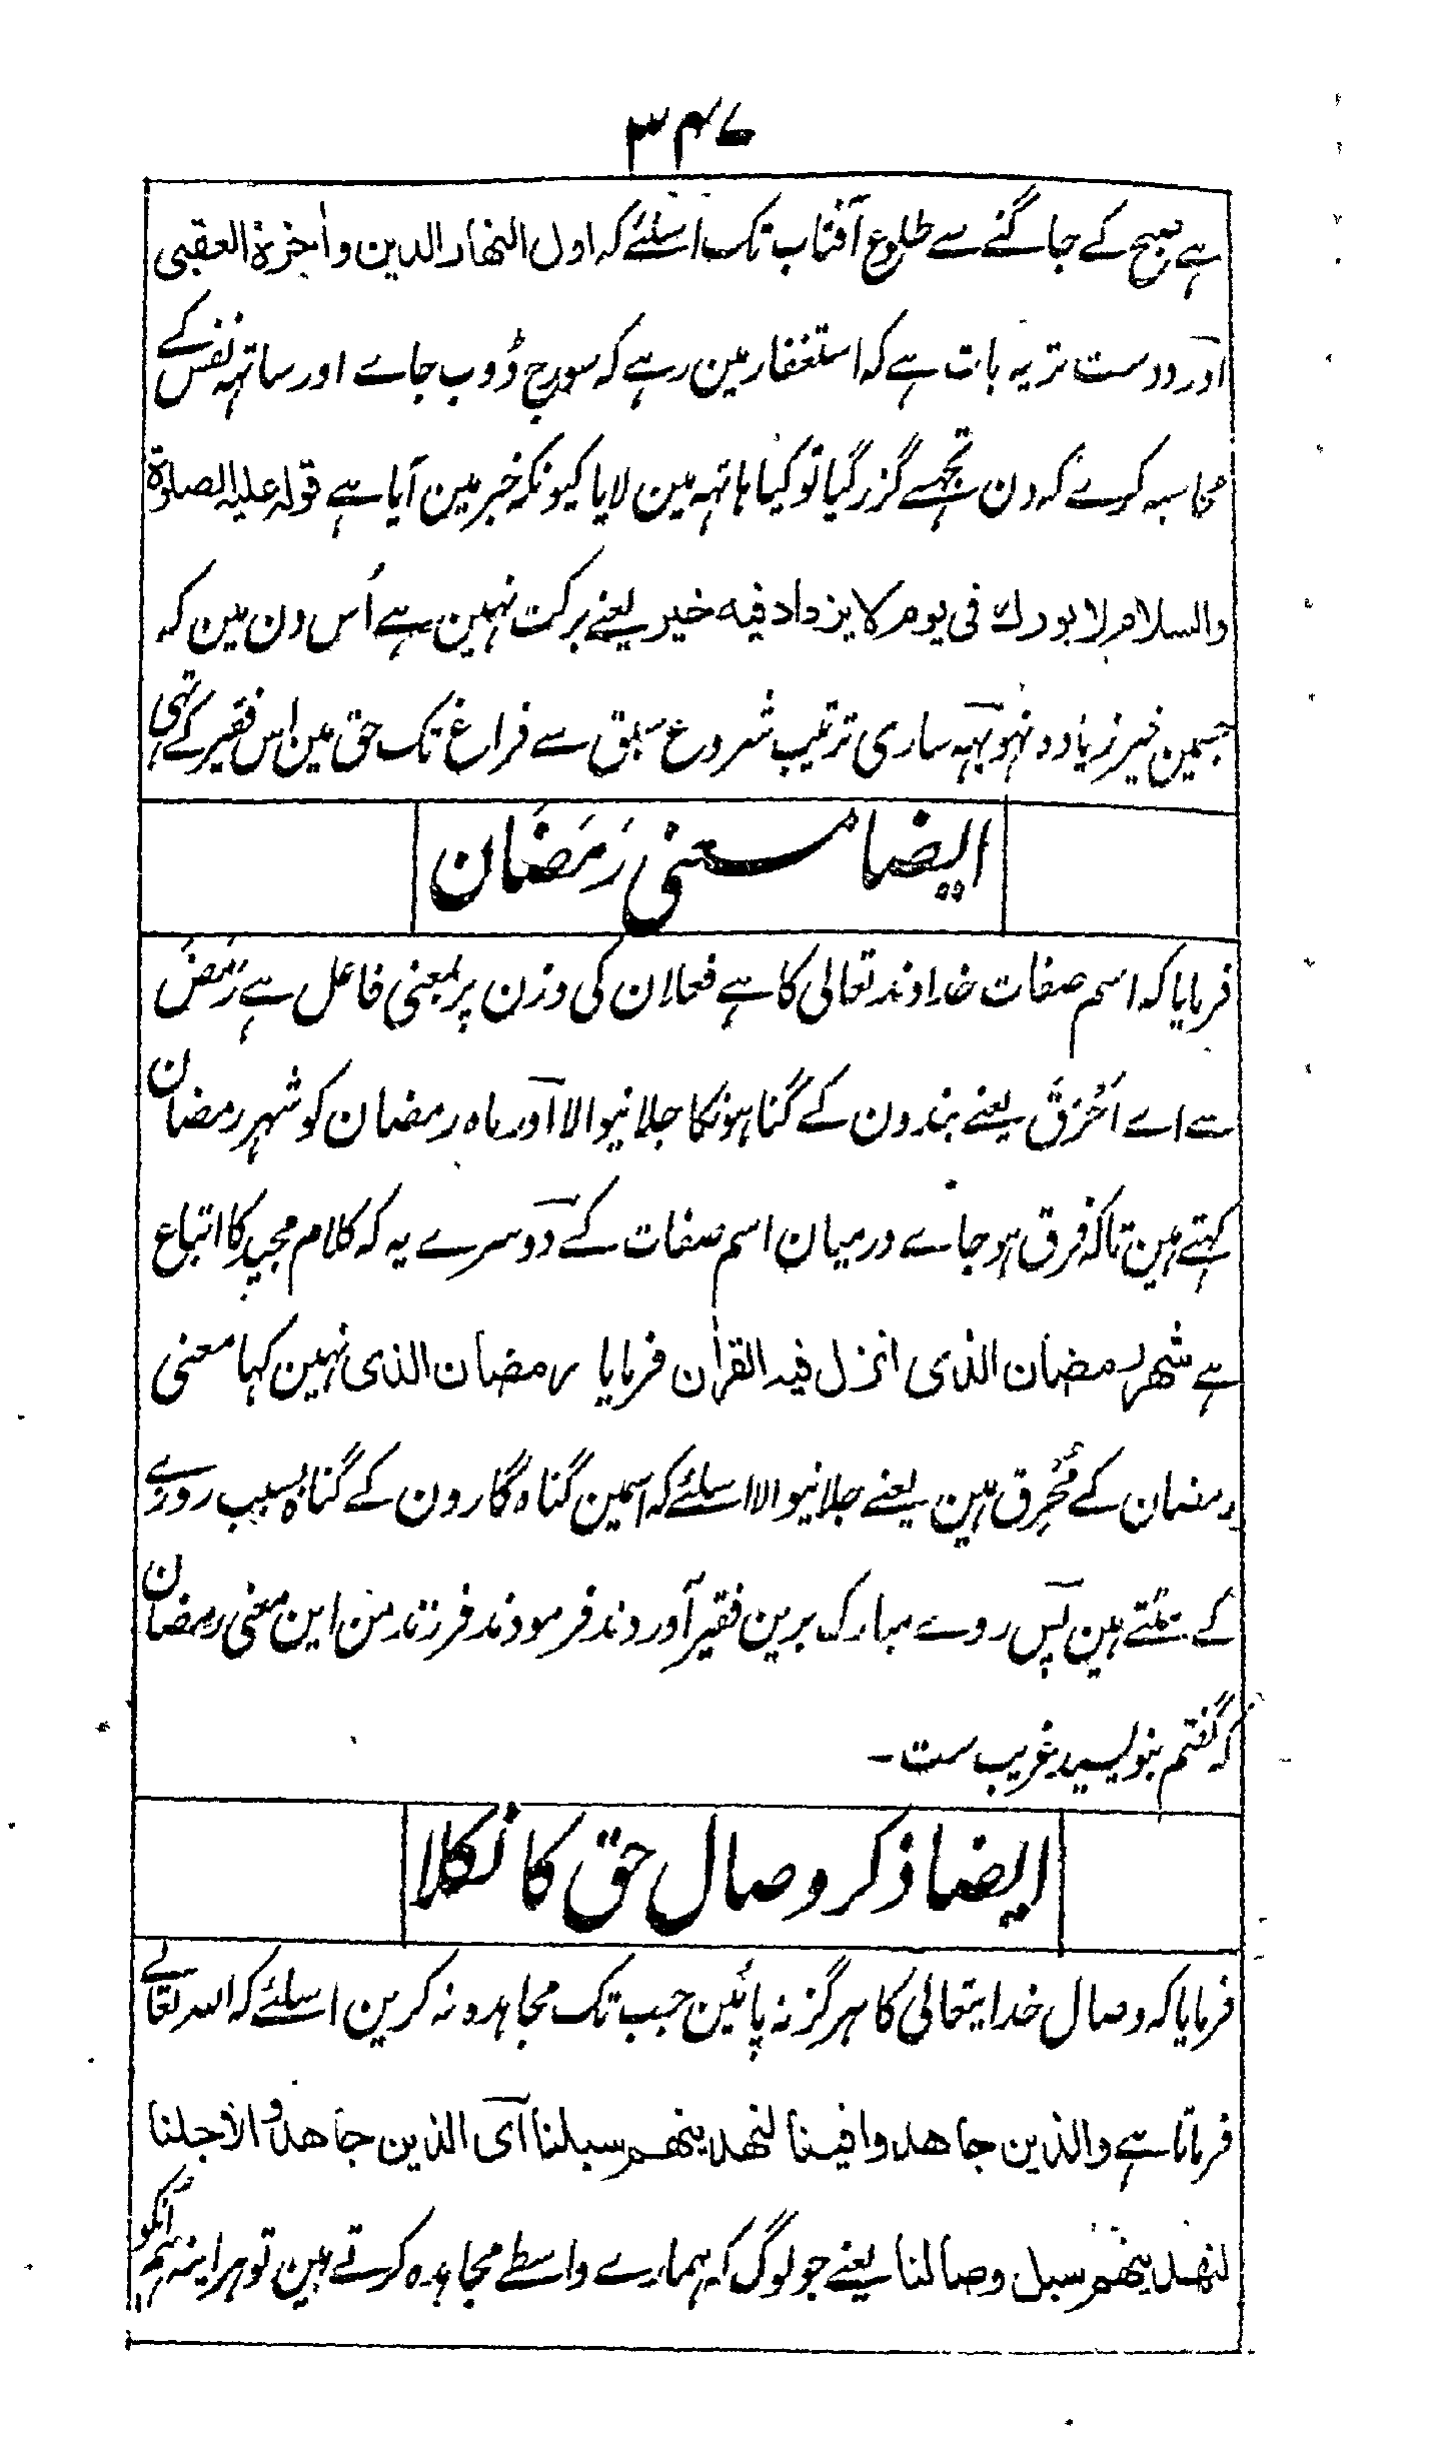 ۳۴۷
ہے صبح کے جاگنے سے طلوع آفتاب تک اسلئے کہ اول النھار الدین واٰخرۃ العقبی
اور درست تر یہ بات ہے کہ استغفار مین رہے کہ سورج ڈوب جاے اور ساتہہ نفس کے
محاسبہ کرے کہ دن تجھے گزر گیا تو کیا ہاتہہ مین لایا کیونکہ خبر مین آیا ہے قولہ علیہ الصلوٰۃ
والسلام لا بورك فی یوم لا یزداد فیہ خیر یعنے برکت نہین ہے اُس دن مین کہ
جسمین خیر زیادہ نہو یہہ ساری ترتیب شروع سبق سے فراغ تک حق مین اس فقیر کے تھی
ایضا معنی رَمَضَان
فرمایا کہ اسم صفات خداوند تعالی کا ہے فعلان کی وزن پر بمعنی فاعل ہے رَمَضَ
سے اے اَحْرَقَ یعنے بندون کے گناہونکا جلانیوالا اور ماہ رمضان کو شہر رمضان
کہتے ہین تاکہ فرق ہو جاے درمیان اسم صفات کے دوسرے یہ کہ کلام مجید کا اتباع
ہے شھر رمضان الذی انزل فیہ القراٰن فرمایا رمضان الذی نہین کہا معنی
رمضان کے مُحْرِق ہین یعنے جلانیوالا اسلئے کہ اسمین گناہ گارون کے گناہ بسبب روزے
کے ہین پس روے مبارک برین فقیر آوردند فرمودند فرزند من این معنی رمضان
کہ گفتم بنویسید غریب ست۔
ایضا ذکر وصال حق کا نکلا
فرمایا کہ وصال خدایتعالی کا ہرگز نہ پائین جب تک مجاہدہ نہ کرین اسلئے کہ اللہ تعالے
فرماتا ہے والذین جاھدوا فینا لنھدینھم سبلنا اٰی الذین جاھدوا لاجلنا
لنھدینھم سبل وصالنا یعنے جو لوگ کہ ہمارے واسطے مجاہدہ کرتے ہین تو ہراینہ ہم انکو